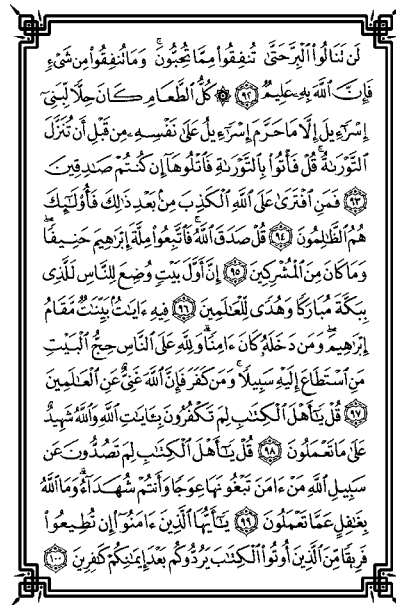 لَن تَنَالُوا۟ ٱلْبِرَّ حَتَّىٰ تُنفِقُوا۟ مِمَّا تُحِبُّونَ ۚ وَمَا تُنفِقُوا۟ مِن شَىْءٍ
فَإِنَّ ٱللَّهَ بِهِۦ عَلِيمٌ ﴿٩٢﴾ ۞ كُلُّ ٱلطَّعَامِ كَانَ حِلًّا لِّبَنِىٓ
إِسْرَٰٓءِيلَ إِلَّا مَا حَرَّمَ إِسْرَٰٓءِيلُ عَلَىٰ نَفْسِهِۦ مِن قَبْلِ أَن تُنَزَّلَ
ٱلتَّوْرَىٰةُ ۗ قُلْ فَأْتُوا۟ بِٱلتَّوْرَىٰةِ فَٱتْلُوهَآ إِن كُنتُمْ صَٰدِقِينَ
﴿٩٣﴾ فَمَنِ ٱفْتَرَىٰ عَلَى ٱللَّهِ ٱلْكَذِبَ مِنۢ بَعْدِ ذَٰلِكَ فَأُو۟لَٰٓئِكَ
هُمُ ٱلظَّٰلِمُونَ ﴿٩٤﴾ قُلْ صَدَقَ ٱللَّهُ ۗ فَٱتَّبِعُوا۟ مِلَّةَ إِبْرَٰهِيمَ حَنِيفًا ۖ
وَمَا كَانَ مِنَ ٱلْمُشْرِكِينَ ﴿٩٥﴾ إِنَّ أَوَّلَ بَيْتٍ وُضِعَ لِلنَّاسِ لَلَّذِى
بِبَكَّةَ مُبَارَكًا وَهُدًى لِّلْعَٰلَمِينَ ﴿٩٦﴾ فِيهِ ءَايَٰتٌۢ بَيِّنَٰتٌ مَّقَامُ
إِبْرَٰهِيمَ ۖ وَمَن دَخَلَهُۥ كَانَ ءَامِنًا ۗ وَلِلَّهِ عَلَى ٱلنَّاسِ حِجُّ ٱلْبَيْتِ
مَنِ ٱسْتَطَاعَ إِلَيْهِ سَبِيلًا ۚ وَمَن كَفَرَ فَإِنَّ ٱللَّهَ غَنِىٌّ عَنِ ٱلْعَٰلَمِينَ
﴿٩٧﴾ قُلْ يَٰٓأَهْلَ ٱلْكِتَٰبِ لِمَ تَكْفُرُونَ بِـَٔايَٰتِ ٱللَّهِ وَٱللَّهُ شَهِيدٌ
عَلَىٰ مَا تَعْمَلُونَ ﴿٩٨﴾ قُلْ يَٰٓأَهْلَ ٱلْكِتَٰبِ لِمَ تَصُدُّونَ عَن
سَبِيلِ ٱللَّهِ مَنْ ءَامَنَ تَبْغُونَهَا عِوَجًا وَأَنتُمْ شُهَدَآءُ ۗ وَمَا ٱللَّهُ
بِغَٰفِلٍ عَمَّا تَعْمَلُونَ ﴿٩٩﴾ يَٰٓأَيُّهَا ٱلَّذِينَ ءَامَنُوٓا۟ إِن تُطِيعُوا۟
فَرِيقًا مِّنَ ٱلَّذِينَ أُوتُوا۟ ٱلْكِتَٰبَ يَرُدُّوكُم بَعْدَ إِيمَٰنِكُمْ كَٰفِرِينَ ﴿١٠٠﴾